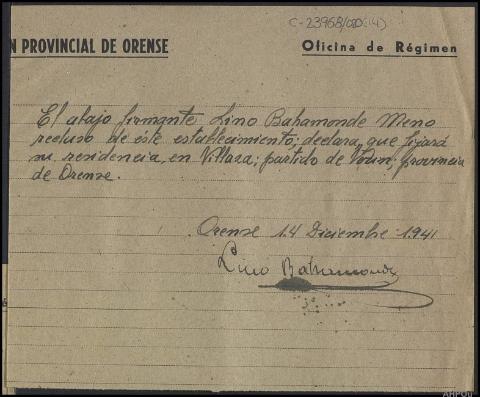 C-23968/080(14)
N PROVINCIAL DE ORENSE
Oficina de Régimen
El abajo firmante Lino Bahamonde Meno
recluso de éste establecimiento; declara, que fijará
su residencia, en Villaza; partido de Verin; provincia
de Orense.
Orense 14 Diciembre 1.941
Lino Bahamonde
AHPOU